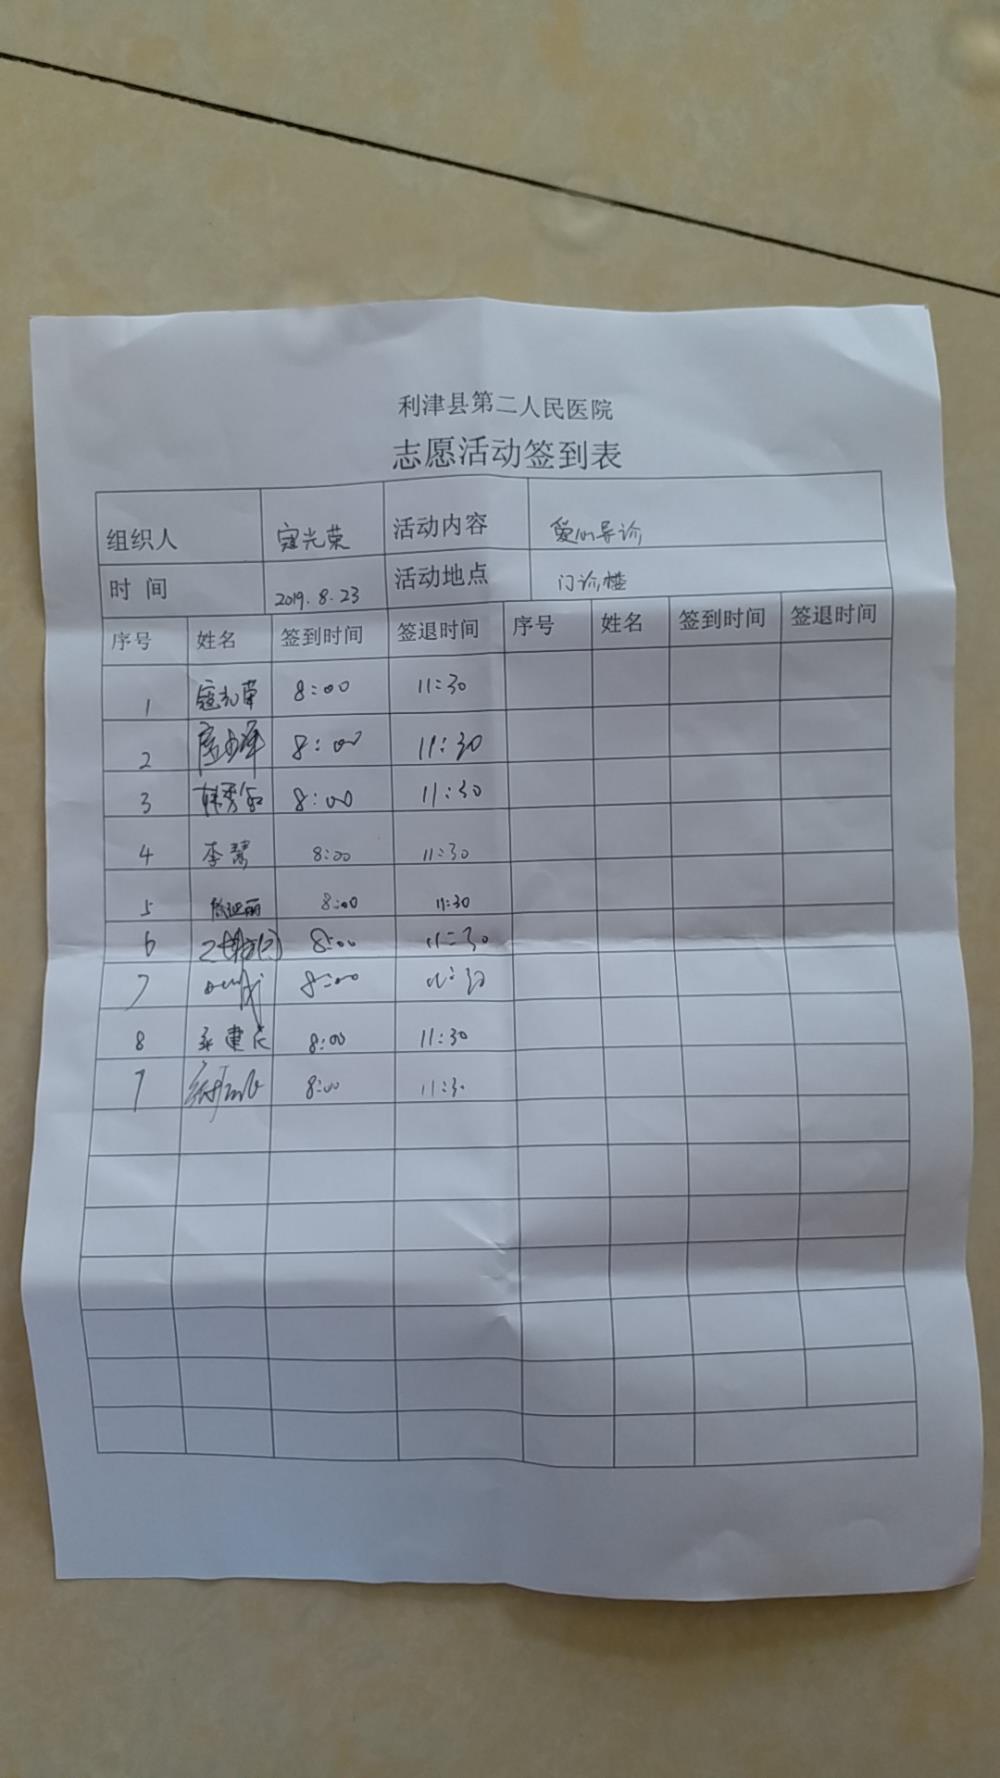 利津县第二人民医院
志愿活动签到表
组织人 寇光荣 活动内容 爱心导诊
时 间 2019.8.23 活动地点 门诊楼
序号 姓名 签到时间 签退时间 序号 姓名 签到时间 签退时间
1 寇光荣 8:00 11:30
2 8:00 11:30
3 8:00 11:30
4 李 8:00 11:30
5 8:00 11:30
6 8:00 11:30
7 8:00 11:30
8 8:00 11:30
8:00 11:30